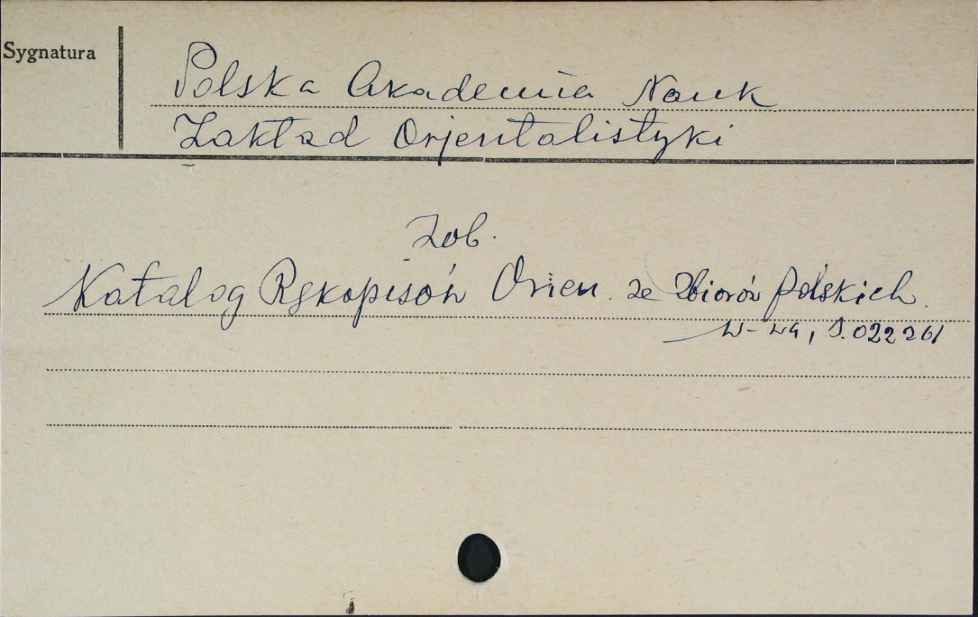 Sygnatura
Polska Akademia Nauk
Zakład Orjentalistyki
Zob.
Katalog Rękopisów Orien. ze Zbiorów Polskich.
S.022261